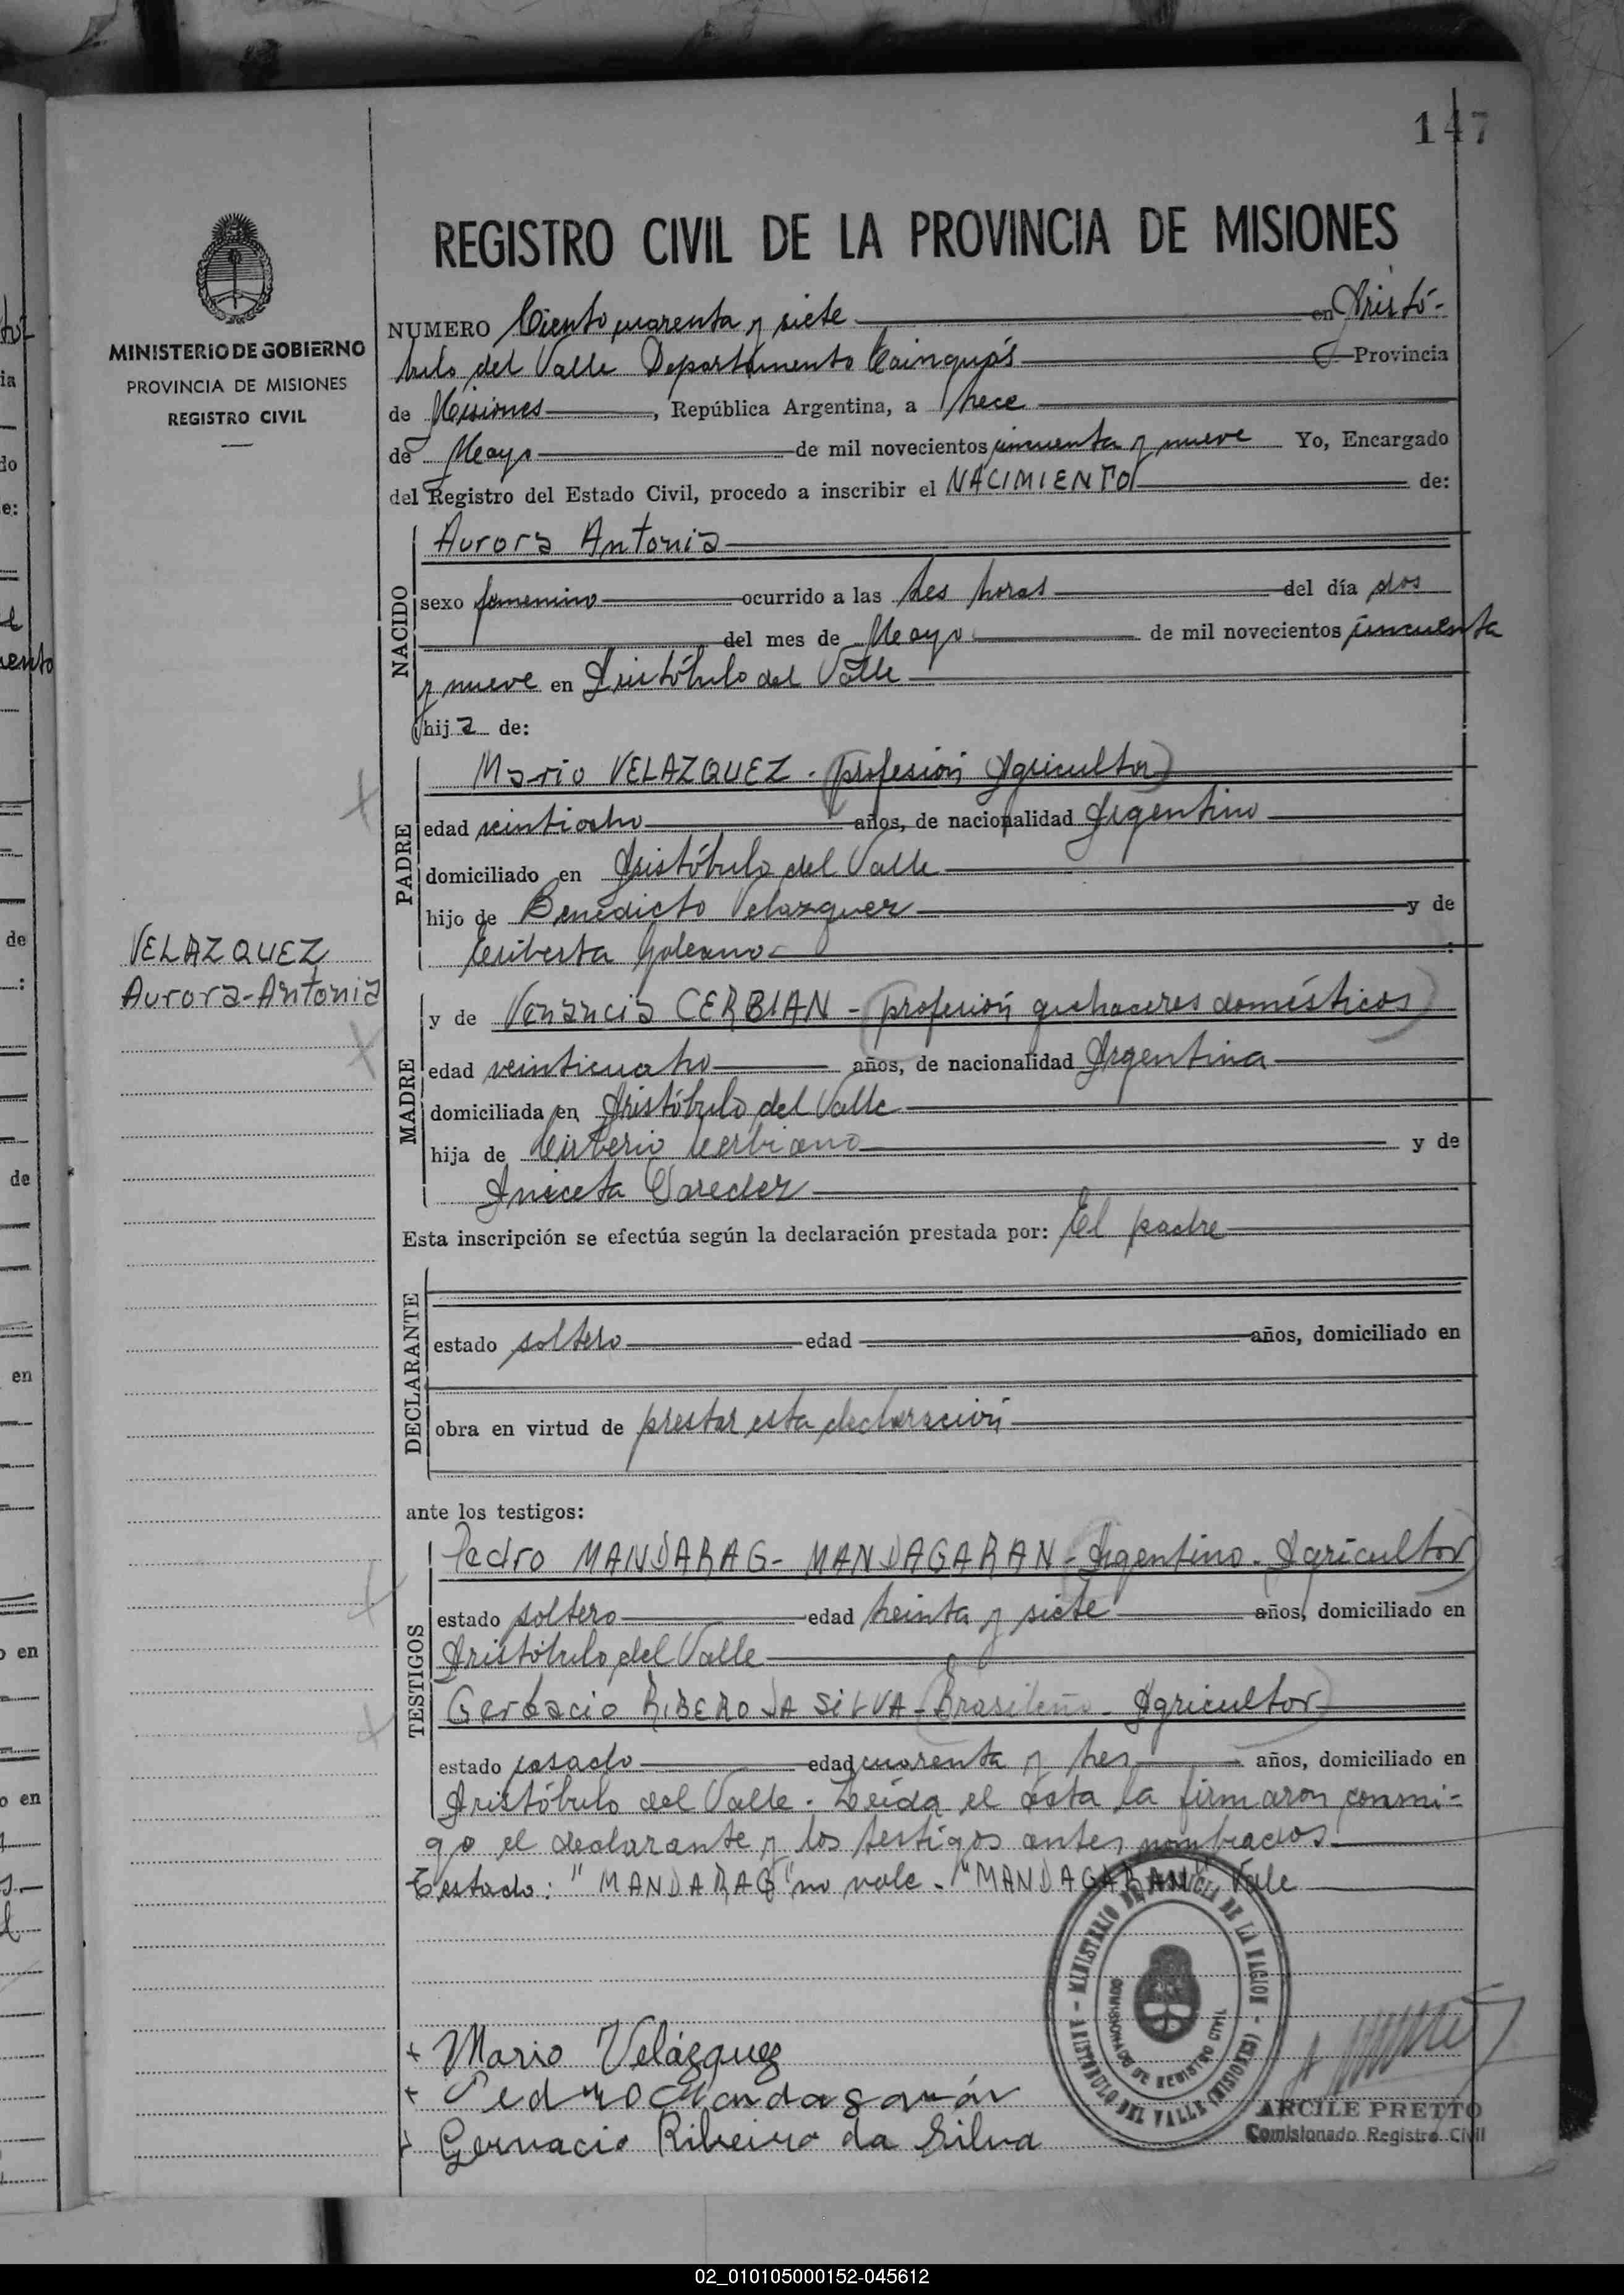 147
MINISTERIO DE GOBIERNO
PROVINCIA DE MISIONES
REGISTRO CIVIL
VELAZQUEZ
Aurora-Antonia
REGISTRO CIVIL DE LA PROVINCIA DE MISIONES
NUMERO Ciento cuarenta y siete en Aristó-
bulo del Valle Departamento Cainguás Provincia
de Misiones, República Argentina, a trece
de Mayo de mil novecientos cincuenta y nueve Yo, Encargado
del Registro del Estado Civil, procedo a inscribir el NACIMIENTO de:
NACIDO
Aurora Antonia
sexo femenino ocurrido a las tres horas del día dos
del mes de Mayo de mil novecientos cincuenta
y nueve en Aristóbulo del Valle
hija de:
PADRE
Mario VELAZQUEZ - (profesión Agricultor)
edad veintiocho años, de nacionalidad Argentino
domiciliado en Aristóbulo del Valle
hijo de Benedicto Velazquez y de
Eriberta Galeano :
MADRE
y de Venancia CERBIAN - (profesión quehaceres domésticos)
edad veinticuatro años, de nacionalidad Argentina
domiciliada en Aristóbulo del Valle
hija de Cerbiano y de
Aniceta Paredez
Esta inscripción se efectúa según la declaración prestada por: El padre
DECLARANTE
estado soltero edad años, domiciliado en
obra en virtud de prestar esta declaración
ante los testigos:
TESTIGOS
Pedro MANDARAG- MANDAGARAN - (Argentino - Agricultor)
estado soltero edad treinta y siete años, domiciliado en
Aristóbulo del Valle
Gerbacio RIBERO DA SILVA - (Brasileño - Agricultor)
estado casado edad cuarenta y tres años, domiciliado en
Aristóbulo del Valle. Leída el acta la firmaron conmi-
go el declarante y los testigos antes nombrados
Testado: "MANDARAG" no vale - "MANDAGARAN" Vale
MINISTERIO DE JUSTICIA DE LA NACION - ARISTOBULO DEL VALLE (MISIONES) -
DE REGISTRO CIVIL
Mario Velázquez
Pedro Mandagarán
Gervacio Ribeiro da Silva
ARCILE PRETTO
Comisionado Registro Civil
02_010105000152-045612